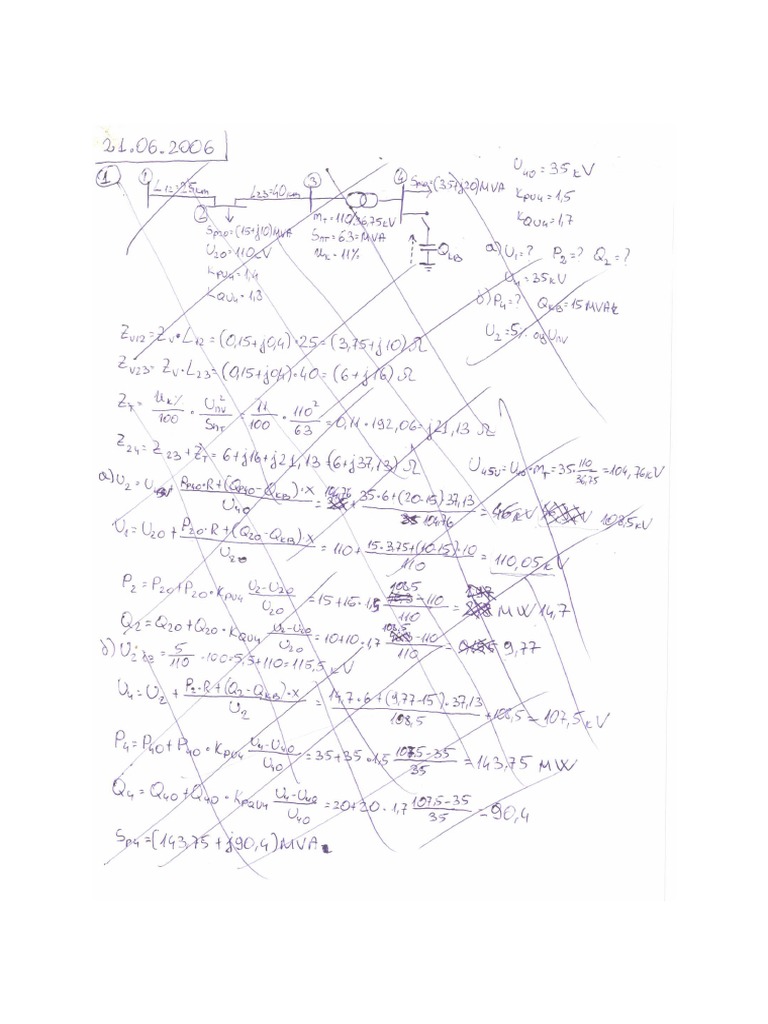 21.06.2006
1
1 L12=25km L23=40km 3 4 Sp40=(35+j20)MVA U40=35kV
2 mT=110/36,75kV KPU4=1,5
Sp20=(15+j10)MVA SnT=63=MVA KQU4=1,7
U20=110kV uk=11% QKB a) U1=? P2=? Q2=?
KPU4=1,4 U4=35kV
KQU4=1,3 б) P4=? QKB=15MVAr
U2=5% од Unv
ZV12=ZV·L12=(0,15+j0,4)·25=(3,75+j10)Ω
ZV23=ZV·L23=(0,15+j0,4)·40=(6+j16)Ω
ZT=uk%/100·Unv²/SnT=11/100·110²/63=0,11·192,06=j21,13Ω
Z24=Z23+ZT=6+j16+j21,13=(6+j37,13)Ω U4sv=U40·mT=35·110/36,75=104,76kV
a) U2=U4sv+(Pp40·R+(Qp40-QKB)·X)/U40=104,76+(35·6+(20-15)37,13)/104,76= 108,5kV
U1=U20+(P20·R+(Q20-QKB)·X)/U20=110+(15·3,75+(10-15)·10)/110=110,05kV
P2=P20+P20·KPU4 (U2-U20)/U20=15+15·1,5 (108,5-110)/110= MW 14,7
Q2=Q20+Q20·KQU4 (U2-U20)/U20=10+10·1,7 (108,5-110)/110= 9,77
б) =5/110·100=5,5+110=115,5kV
U4=U2+(P2·R+(Q2-QKB)·X)/U2=(14,7·6+(9,77-15)·37,13)/108,5+108,5=107,5kV
P4=P40+P40·KPU4 (U4-U40)/U40=35+35·1,5 (107,5-35)/35=143,75 MW
Q4=Q40+Q40·KPQU4 (U4-U40)/U40=20+20·1,7 (107,5-35)/35=90,4
Sp4=(143,75+j90,4)MVA